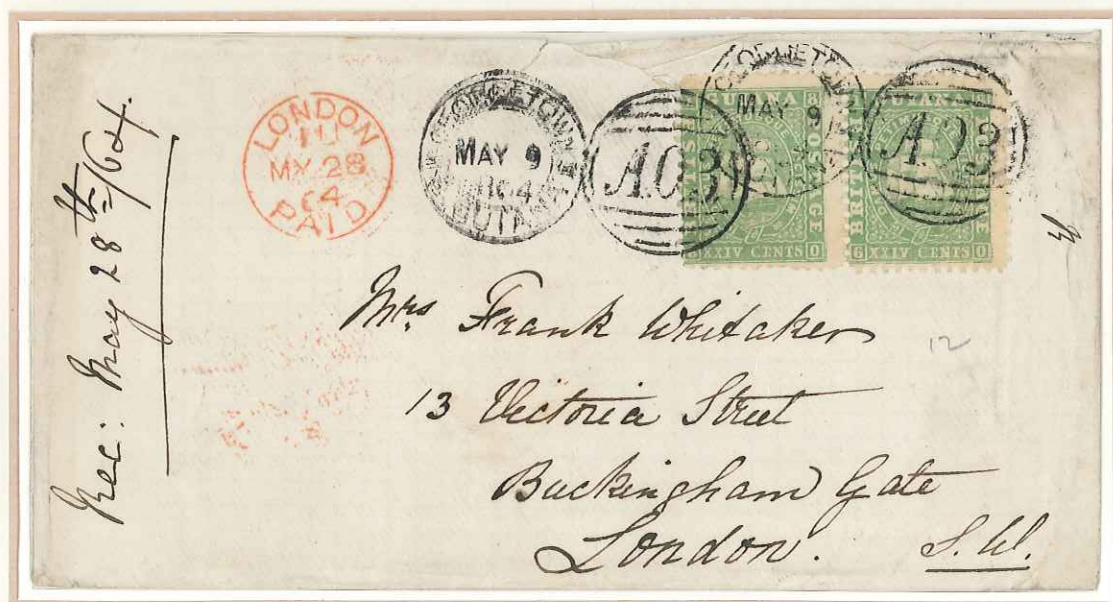 Rec: May 28th /64.
LONDON
MY 28
64
PAID
GEORGETOWN
MAY 9
1864
A03
GEORGETOWN
MAY 9
A03
BRITISH
GUIANA
POSTAGE
XXIV CENTS
BRITISH
GUIANA
POSTAGE
XXIV CENTS
Mrs Frank Whitaker
12
13 Victoria Street
Buckingham Gate
London. S.W.